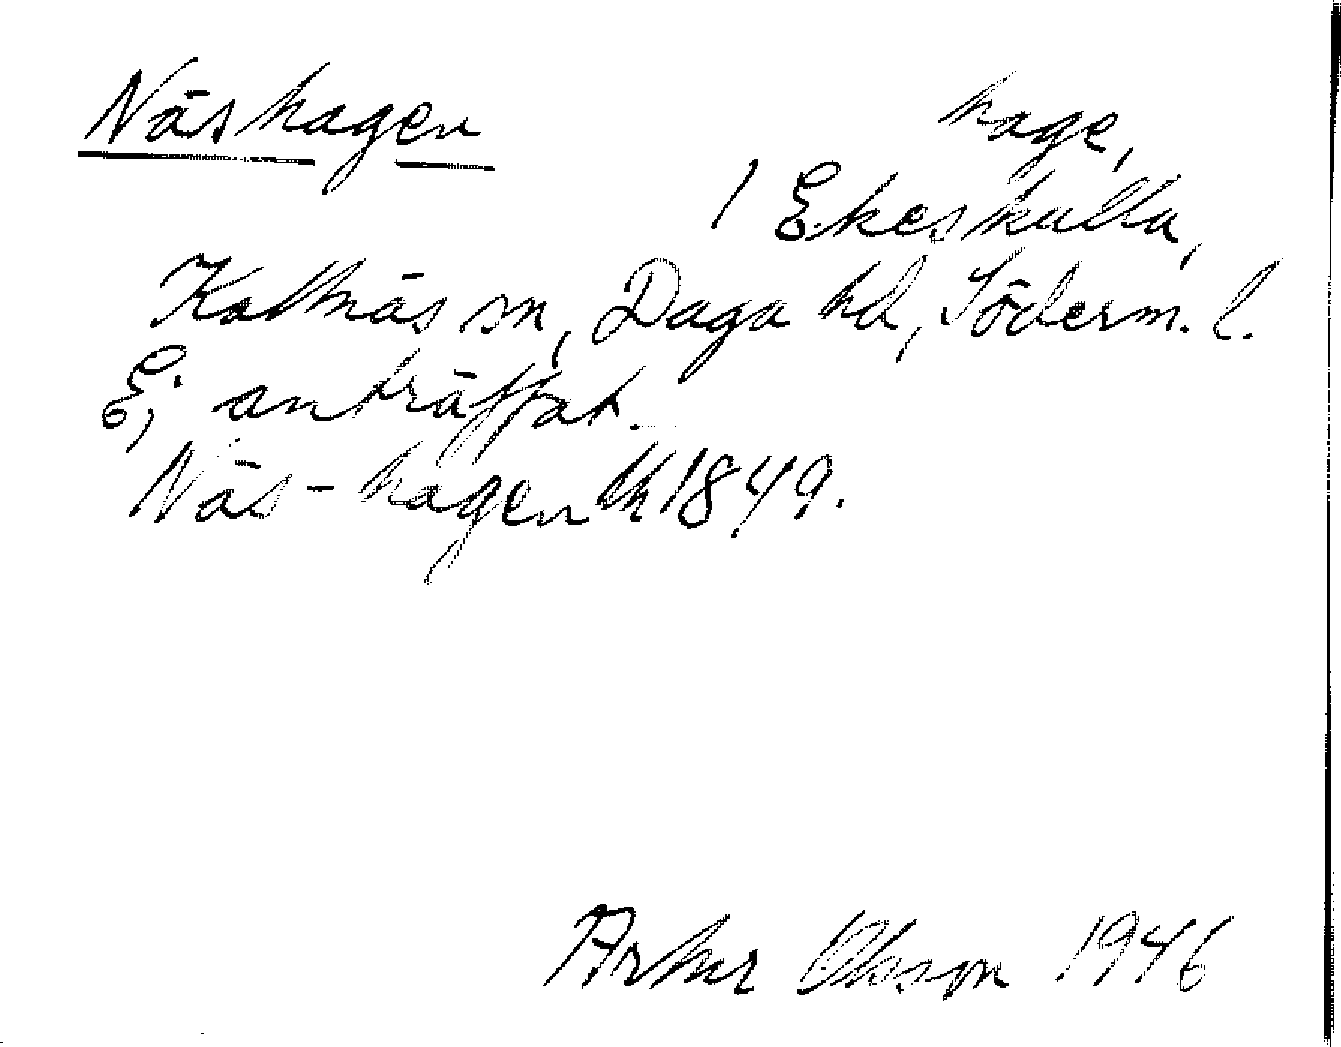 Näshagen
hage,
1 Ekeskulla,
Kattnäs sn, Daga hd, Söderm. l.
Ej anträffat.
Näs-hagen lk 1849.
Arthur Olsson 1946